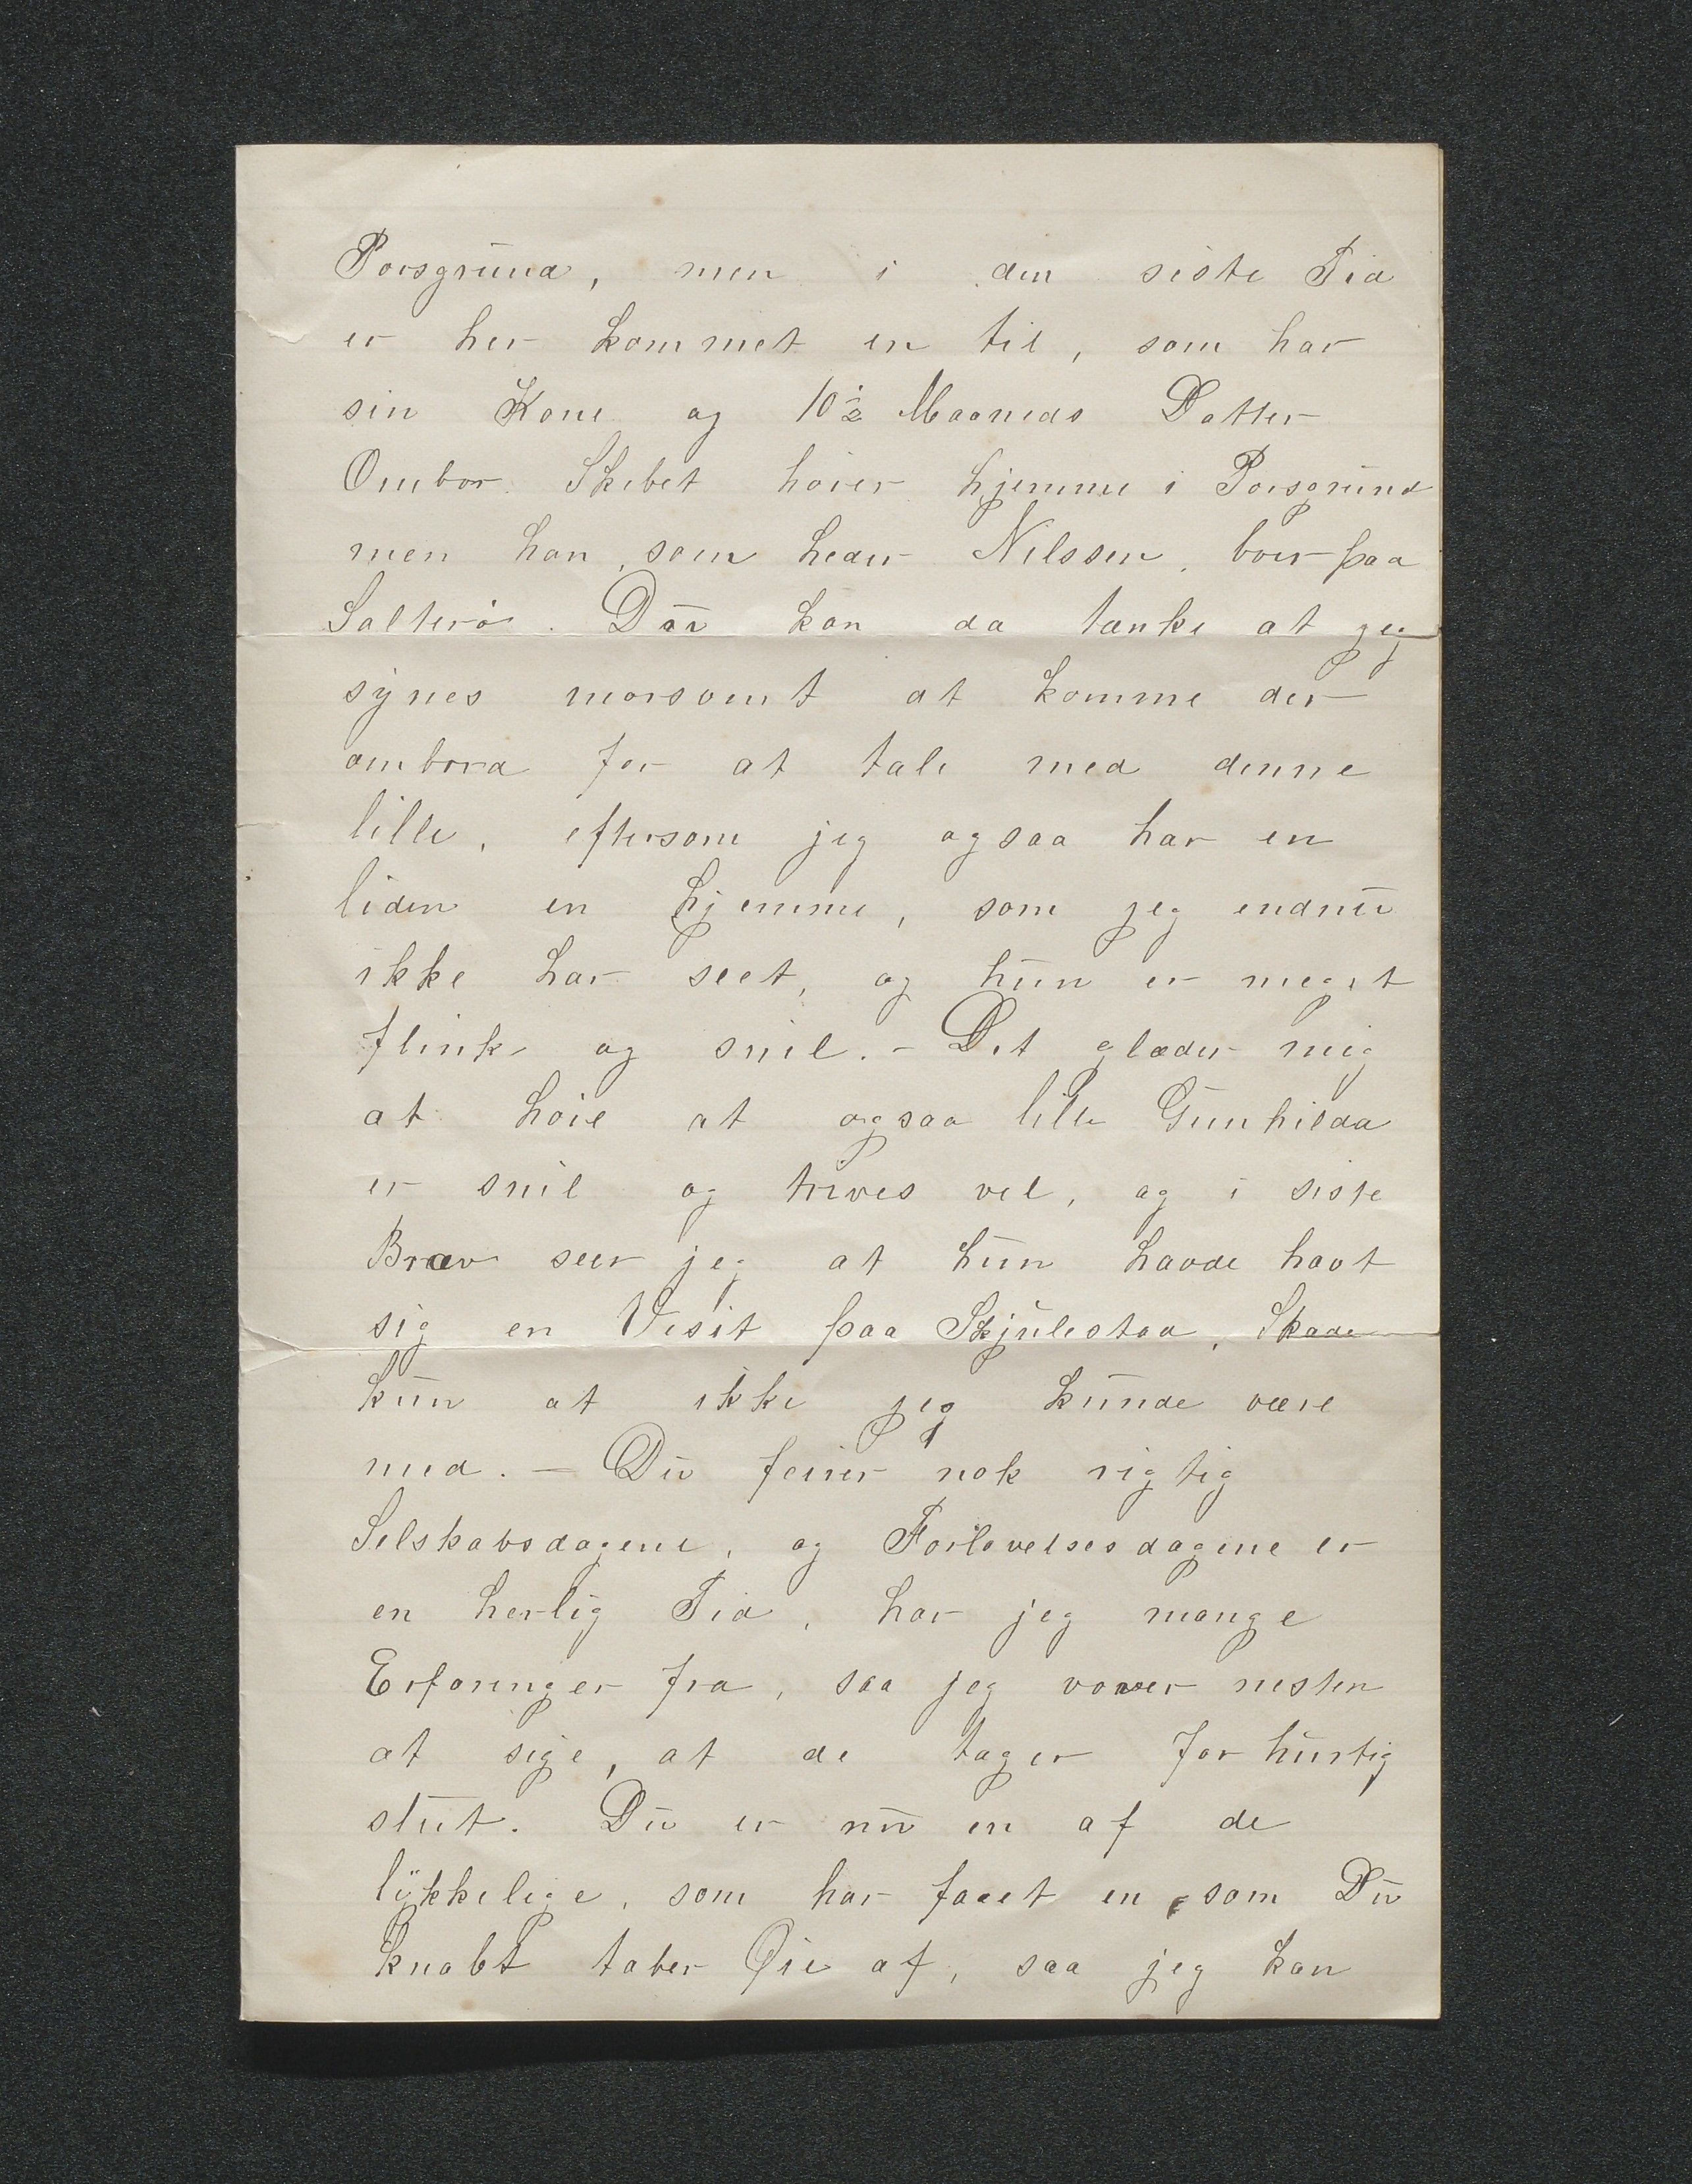 Porsgrund, men i den siste Tid
er her kommet en til, som har
sin Kone og 10½ Maaneds Datter
Ombor. Skibet hører hjemme i Porsgrund
men han, som heder Nilssen, boer paa
Salterø. Du kan da tænke at jeg
synes morsomt at komme der
ombord for at tale med denne
lille, eftersom jeg ogsaa har en
liden en hjemme, som jeg endnu
ikke har seet, og hun er meget
flink og snil. – Det glæder mig
at høre at ogsaa lille Gunhilda
er snil og trives vel, og i siste
Bræv seer jeg at hun havde havt
sig en Visit paa Skjulestad, Skade
kun at ikke jeg kunde være
med. – Du feirer nok rigtig
Selskabsdagene, og Forlovelsesdagene er
en herlig Tid, har jeg mange
Erfaringer fra, saa jeg vover nesten
at sige, at de tager for hurtig
slut. Du er nu en af de
lykkelige, som har faaet en, som Du
knabt taber Øie af, saa jeg kan